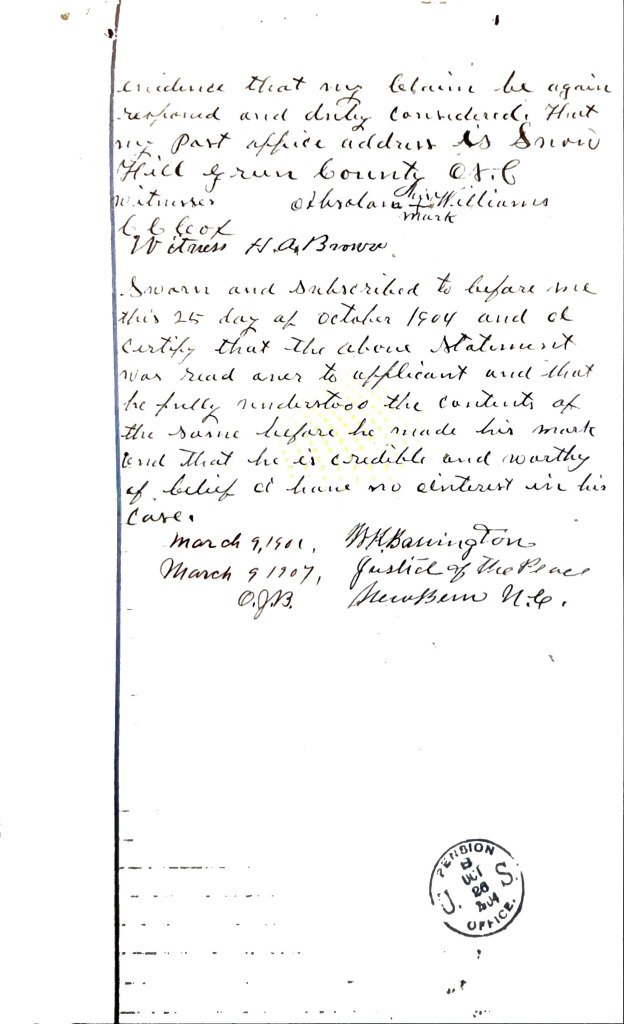 evidence that my Claim be again
reopened and duly considered. That
my Post office address is Snow
Hill Green County N.C
witnesses Abraham his Williams
mark
C C Cox
Witness H. A. Brown.
Sworn and subscribed to before me
this 25 day of October 1904 and I
certify that the above statement
was read over to applicant and that
he fully understood the contents of
the same before he made his mark
and that he is credible and worthy
of belief I have no interest in his
Case.
March 9, 1901,
March 9 1907,
O.J.B.
Justice of the Peace
New Bern N.C.
U.S. PENSION OFFICE.
OCT
26